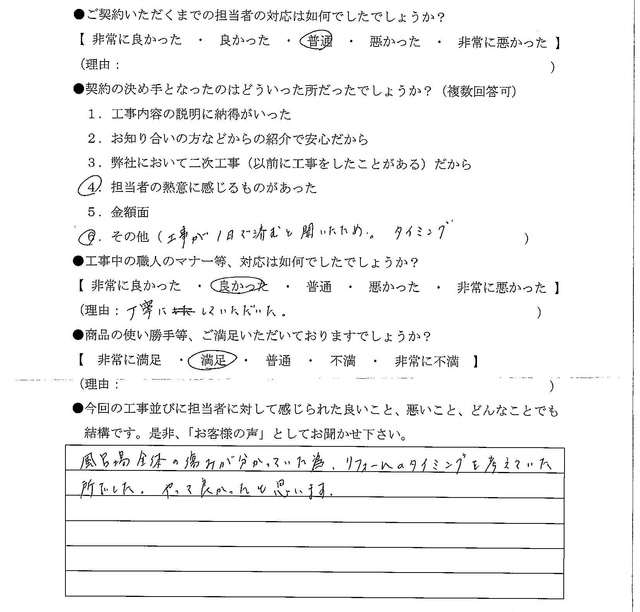 ●ご契約いただくまでの担当者の対応は如何でしたでしょうか？
【 非常に良かった ・ 良かった ・ 普通 ・ 悪かった ・ 非常に悪かった 】
（理由： ）
●契約の決め手となったのはどういった所だったでしょうか？（複数回答可）
１．工事内容の説明に納得がいった
２．お知り合いの方などからの紹介で安心だから
３．弊社において二次工事（以前に工事をしたことがある）だから
４．担当者の熱意に感じるものがあった
５．金額面
６．その他（工事が1日で済むと聞いたため。 タイミング ）
●工事中の職人のマナー等、対応は如何でしたでしょうか？
【 非常に良かった ・ 良かった ・ 普通 ・ 悪かった ・ 非常に悪かった 】
（理由：丁寧にしていただいた。 ）
●商品の使い勝手等、ご満足いただいておりますでしょうか？
【 非常に満足 ・ 満足 ・ 普通 ・ 不満 ・ 非常に不満 】
（理由： ）
●今回の工事並びに担当者に対して感じられた良いこと、悪いこと、どんなことでも
結構です。是非、「お客様の声」としてお聞かせ下さい。
風呂場全体の傷みが分かっていた為、リフォームのタイミングを考えていた
所でした。やって良かったと思います。